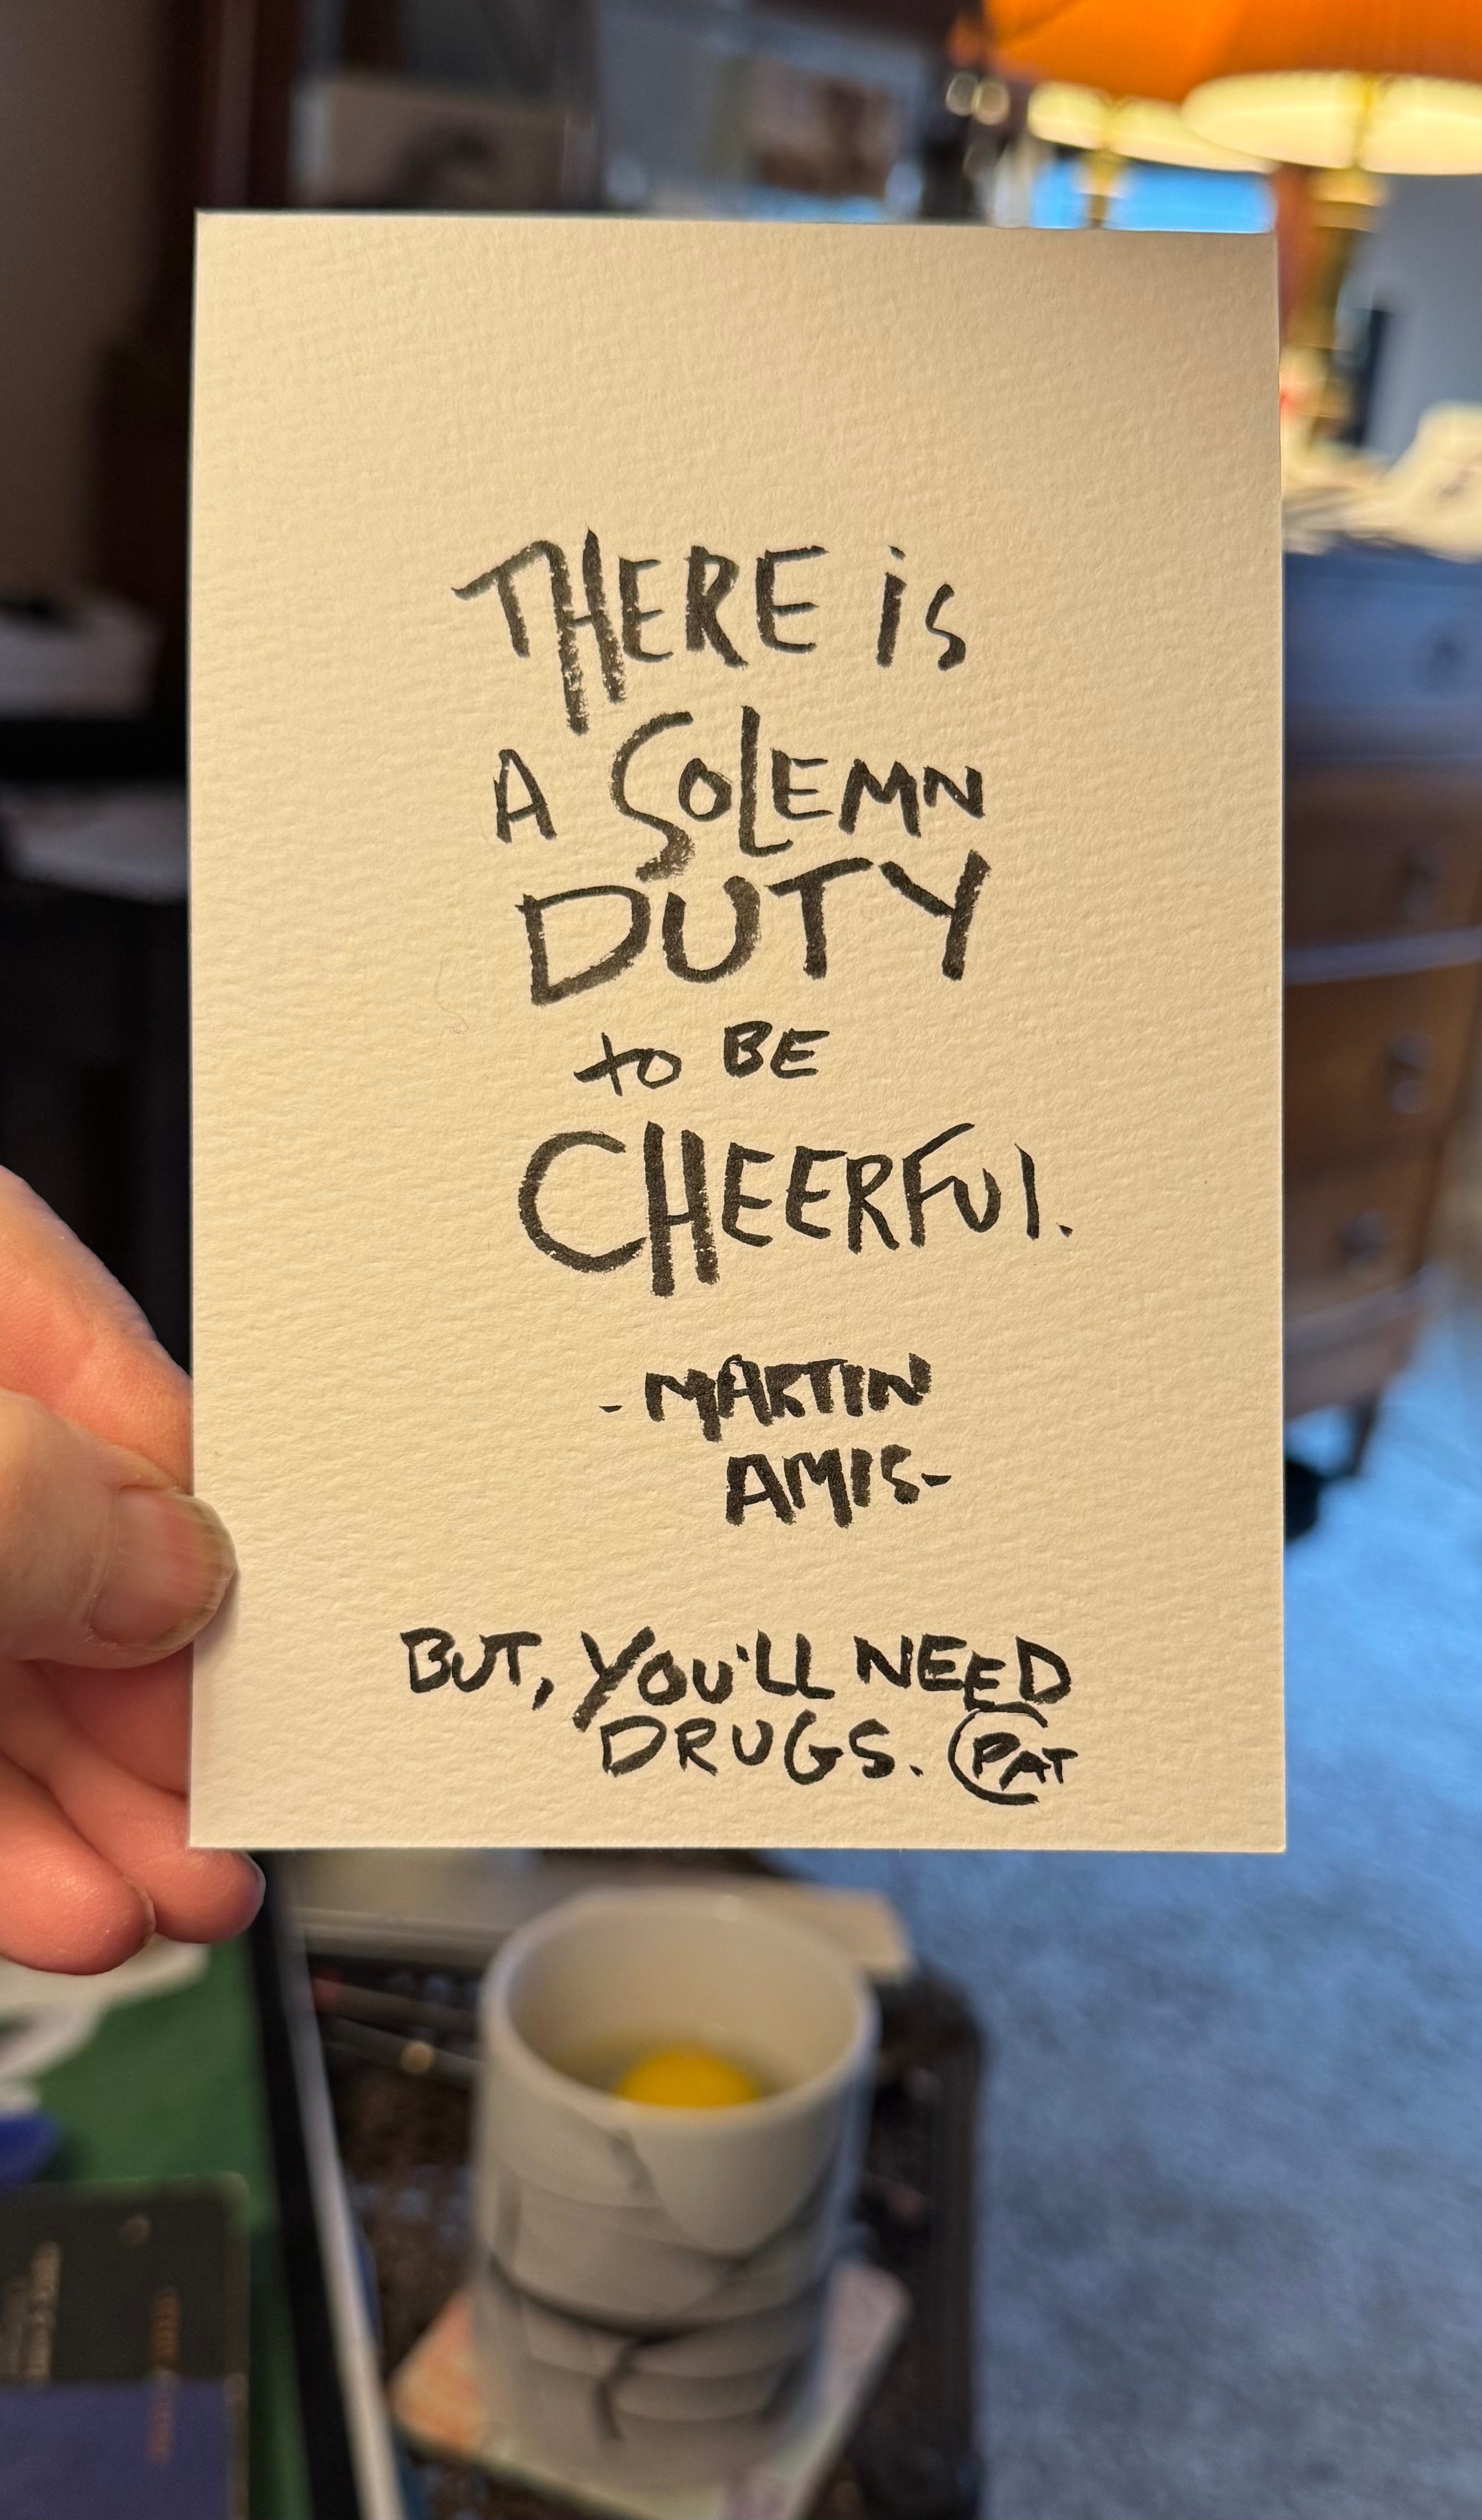 THERE is
A SOLEMN
DUTY
to BE
CHEERFUl.
- MARTIN
AMIS-
BUT, YOU'LL NEED
DRUGS. PAT